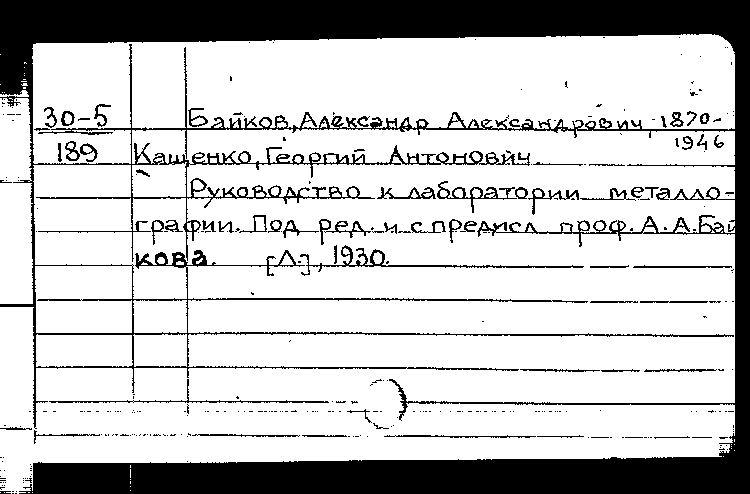 30-5 Байков, Александр Александрович, 1870-
1946
189 Кащенко, Георгий Антонович.
Руководство к лаборатории металло-
графии. Под ред. и с предисл проф. А. А. Бай
кова. [Л.], 1930.